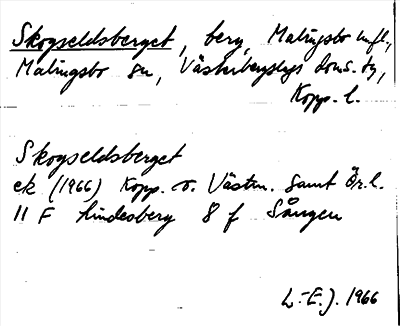 Skogseldsberget, berg, Malingsbo mfl.,
Malingsbo sn, Västerbergslags doms. tg,
Kopp. l.
Skogseldsberget
ek (1966) Kopp. o. Västm. samt Ör. l.
11 F Lindesberg 8 f Sången
L-E. J. 1966